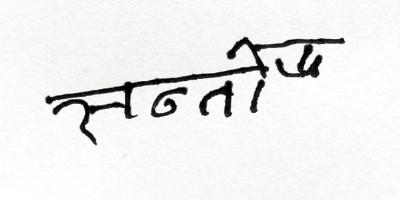 सन्तोष